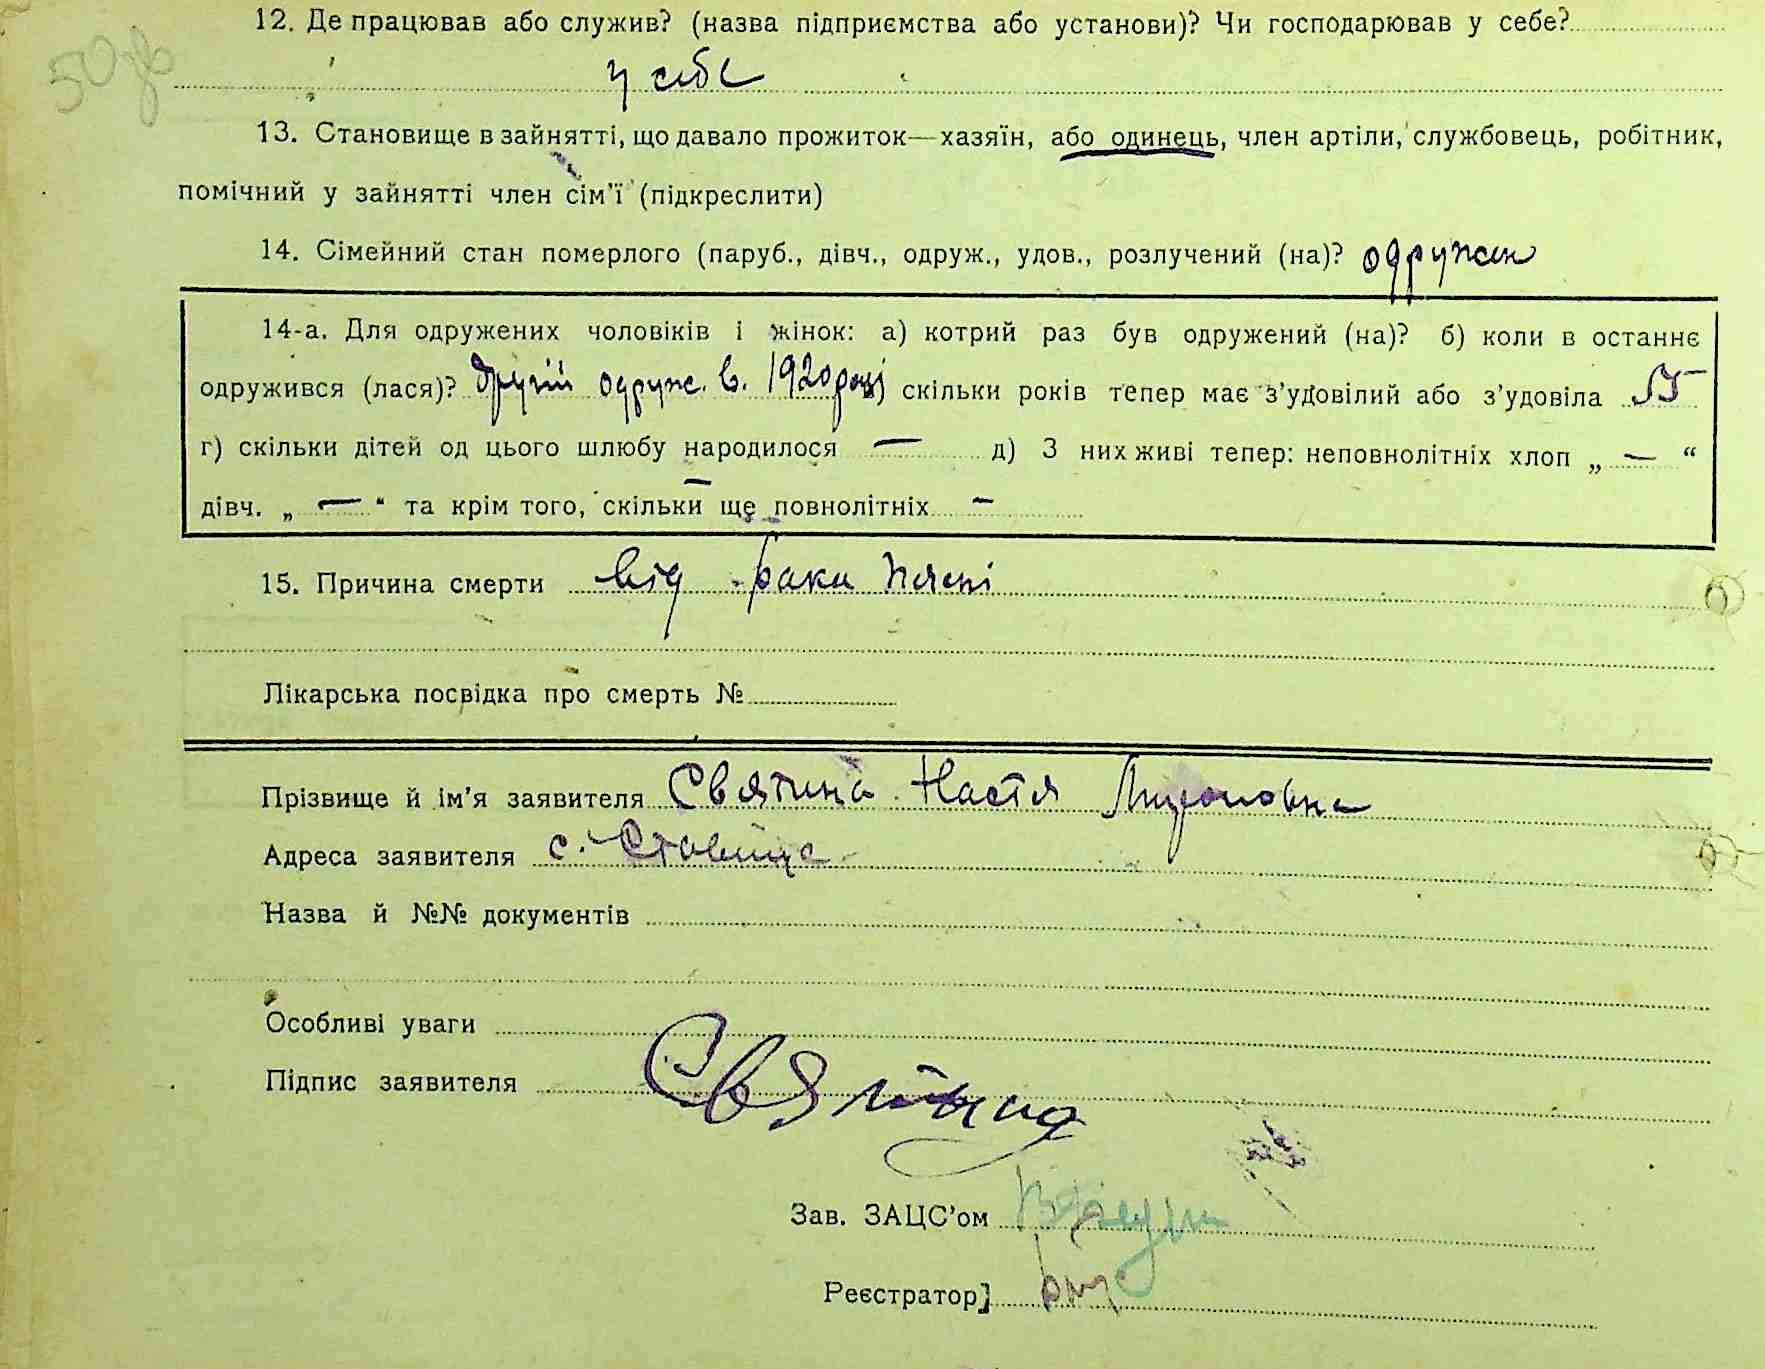 50 зв
12. Де працював або служив? (назва підприємства або установи)? Чи господарював у себе?
у себе
13. Становище в зайнятті, що давало прожиток—хазяїн, або одинець, член артіли, службовець, робітник,
помічний у зайнятті член сім'ї (підкреслити)
14. Сімейний стан померлого (паруб., дівч., одруж., удов., розлучений (на)? одружен
14-а. Для одружених чоловіків і жінок: а) котрий раз був одружений (на)? б) коли в останнє
одружився (лася)? другій одруж. в. 1920 році) скільки років тепер має з'удовілий або з'удовіла
г) скільки дітей од цього шлюбу народилося — д) З них живі тепер: неповнолітніх хлоп „ — “
дівч. „ — “ та крім того, скільки ще повнолітніх —
15. Причина смерти від рака
Лікарська посвідка про смерть №
Прізвище й ім'я заявителя Святина Настя
Адреса заявителя с. Ставище
Назва й №№ документів
Особливі уваги
Підпис заявителя Святина
Зав. ЗАЦС'ом
Реєстратор]